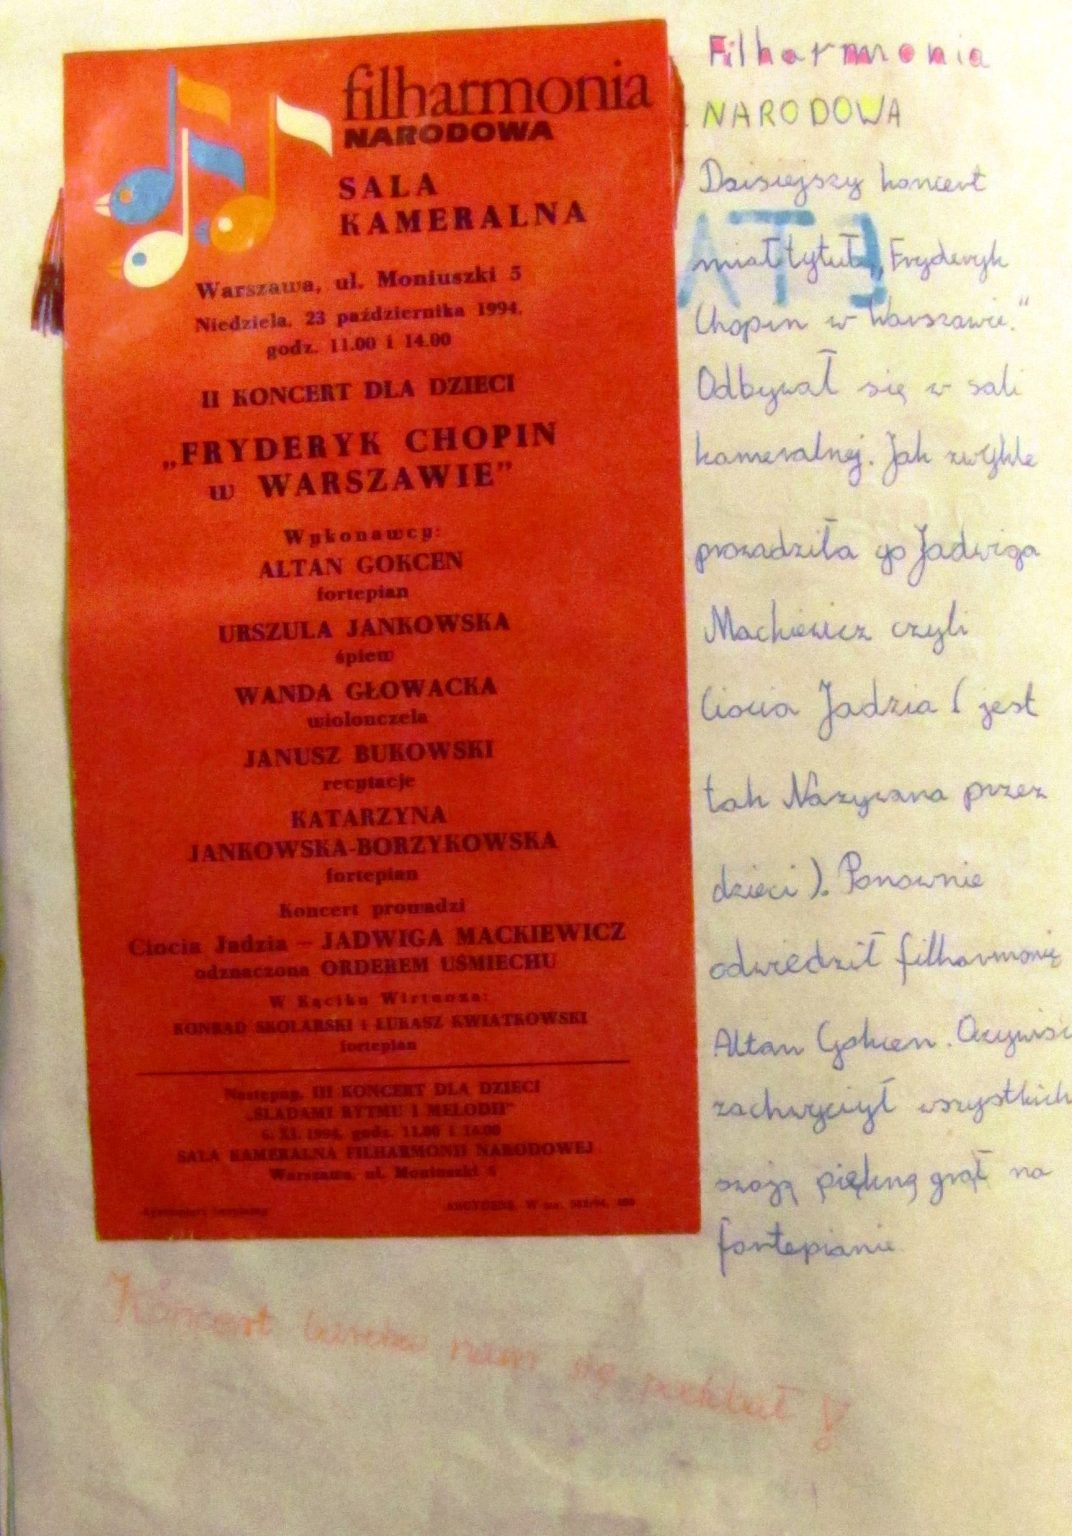 filharmonia
NARODOWA
SALA
KAMERALNA
Warszawa, ul. Moniuszki 5
Niedziela, 23 października 1994,
godz. 11.00 i 14.00
II KONCERT DLA DZIECI
„FRYDERYK CHOPIN
w WARSZAWIE”
Wykonawcy:
ALTAN GOKCEN
fortepian
URSZULA JANKOWSKA
śpiew
WANDA GŁOWACKA
wiolonczela
JANUSZ BUKOWSKI
recytacje
KATARZYNA
JANKOWSKA-BORZYKOWSKA
fortepian
Koncert prowadzi
Ciocia Jadzia – JADWIGA MACKIEWICZ
odznaczona ORDEREM UŚMIECHU
W Kąciku Wirtuoza:
KONRAD SKOLARSKI i ŁUKASZ KWIATKOWSKI
fortepian
Następny, III KONCERT DLA DZIECI
„ŚLADAMI RYTMU I MELODII”
6. XI. 1994, godz. 11.00 i 14.00
SALA KAMERALNA FILHARMONII NARODOWEJ
Warszawa, ul. Moniuszki 5
Filharmonia
NARODOWA
Dzisiejszy koncert
miał tytuł „Fryderyk
Chopin w Warszawie.”
Odbywał się w sali
kameralnej. Jak zwykle
prowadziła go Jadwiga
Mackiewicz czyli
Ciocia Jadzia ( jest
tak Nazywana przez
dzieci ). Ponownie
odwiedził filharmonię
Altan Gokcen.
zachwycił wszystkich
swoją piękną grął na
fortepianie
Koncert bardzo nam się podobał !